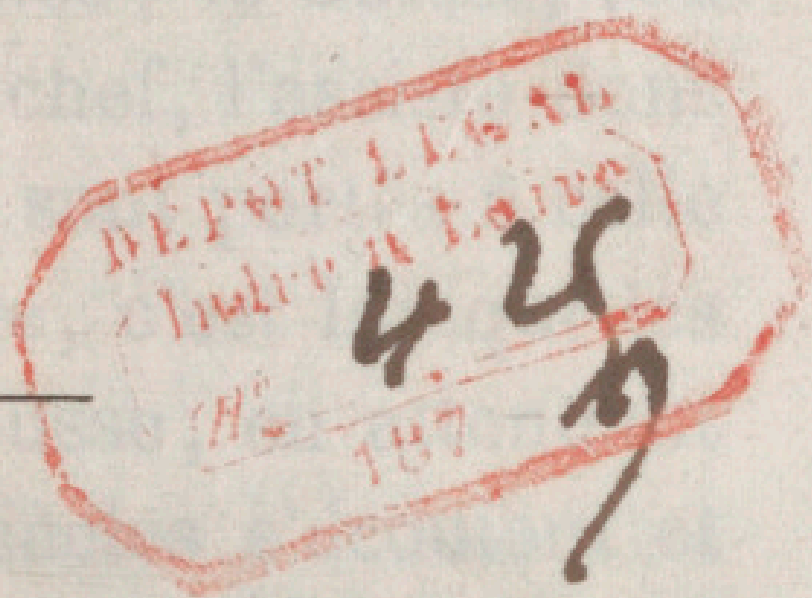 DEPOT LEGAL
Indre & Loire
Nº 4
187